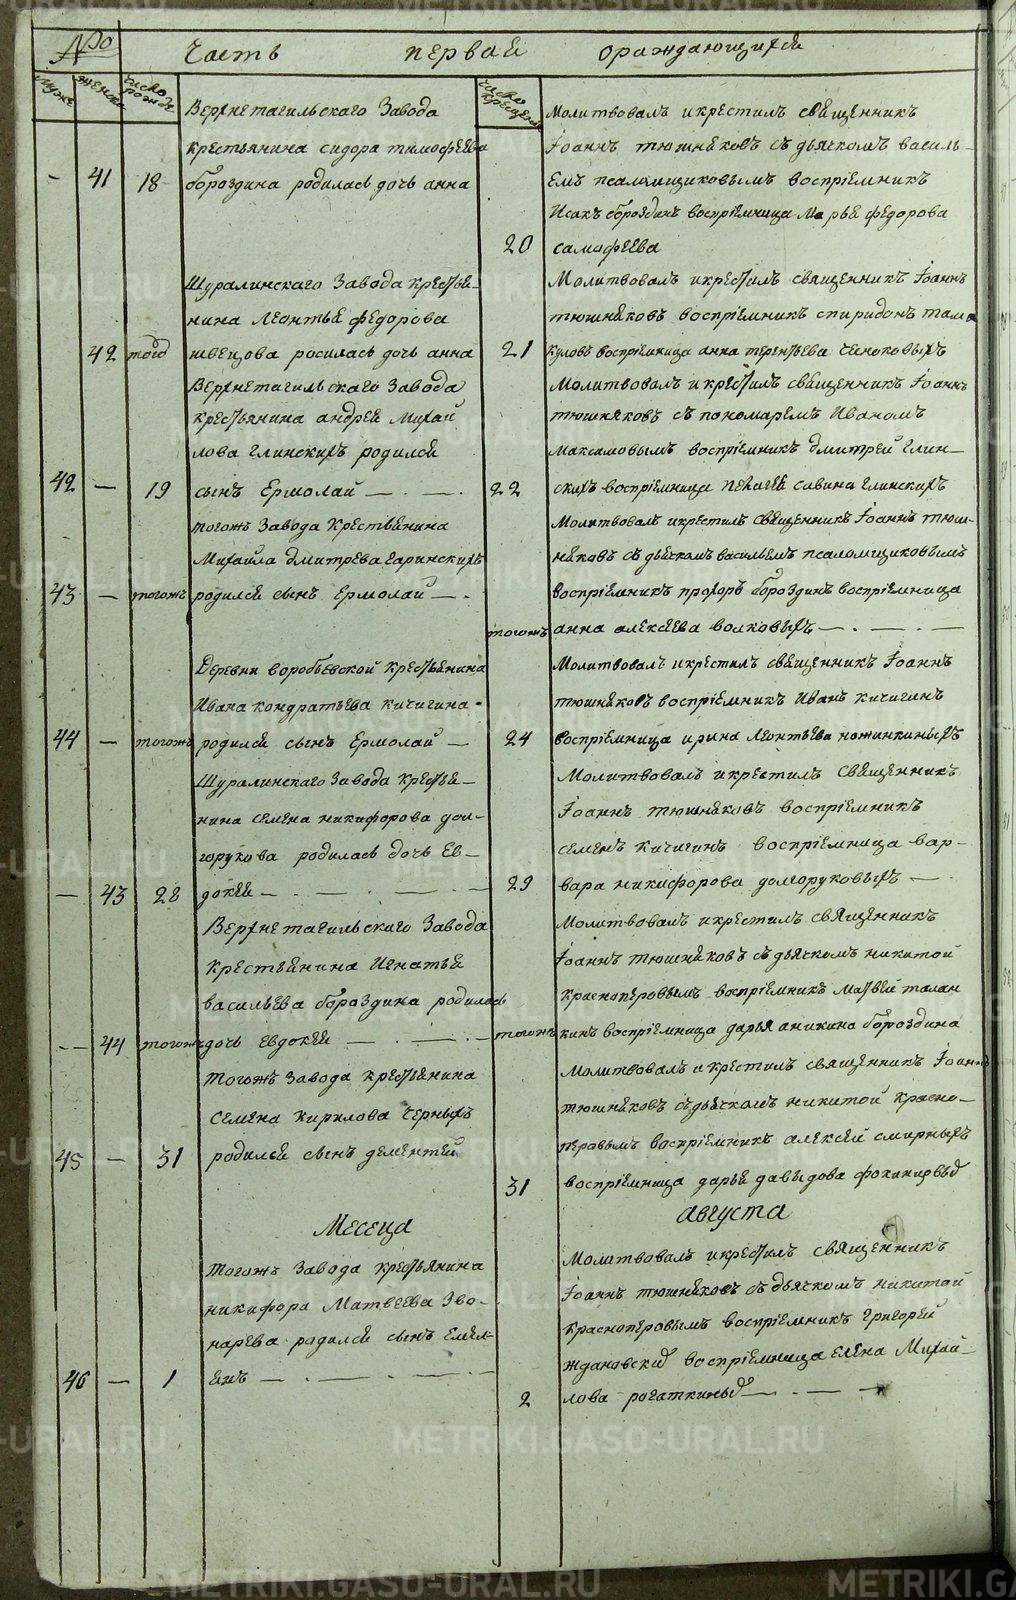 №ро Часть первая ораждающихся
муже женска число рожде число крещен
Верхнетагильского Завода
крестьянина сидора тимофеева
— 41 18 бороздина родилась дочь анна
Молитвовалъ икрестилъ священникъ
Іоаннъ тюшняковъ съ дьячкомъ василь-
емъ псаломщиковымъ воспріемникъ
Исакъ бороздинъ воспріемница Марья федорова
20 самофеева
Шуралинскаго Завода крестья-
нина Леонтья федорова
42 тогд швецова росилась дочь анна
Молитвовалъ икрестилъ священникъ Іоаннъ
тюшняковъ воспріемникъ спиридонъ тала
21 куловъ воспріемница анна терентьева чесноковыхъ
Верхнетагильскаго Завода
крестьянина андрея Михай
лова глинскихъ родился
42 — 19 сынъ Ермолай — . — .
Молитвовалъ икрестилъ священникъ Іоаннъ
тюшняковъ съ пономаремъ Иваномъ
Максимовымъ воспріемникъ дмитрей глин—
22 скихъ воспріемница пелагея савина глинскихъ
тогожъ Завода крестьянина
Михайла дмитрева гаринскихъ
43 — тогожъ родился сынъ Ермолай — .
Молитвовалъ икрестилъ священникъ Іоаннъ тюш-
няковъ съ дьячкомъ васильемъ псаломщиковымъ
воспріемникъ прохоръ бороздинъ воспріемница
тогожъ анна алексеева волковыхъ — . — . —
Деревни воробьевской крестьянина
Ивана кондратьева кичигина -
44 — тогожъ родился сынъ Ермолай —
Молитвовалъ икрестилъ священникъ Іоаннъ
тюшняковъ воспріемникъ Иванъ кичигинъ
24 воспріемница ирина леонтьева ножинкиныхъ
Шуралинскаго Завода крестья—
нина семена никифорова дол-
горукова родилась дочь Ев—
— 43 28 докея — . — . — . —
Молитвовалъ икрестилъ священникъ
Іоаннъ тюшняковъ воспріемникъ
семенъ кичигинъ воспріемница вар-
29 вара никифорова долгоруковыхъ — .
Верхнетагильскаго Завода
крестьянина Игнатья
васильева бороздина родилась
— 44 тогожъ дочь евдокея — . — . —
Молитвовалъ икрестилъ священникъ
Іоаннъ тюшняковъ съ дьячкомъ никитой
красноперовымъ воспріемникъ матвей талан
тогожъ кинъ воспріемница дарья аникина бороздина
Тогожъ завода крестьянина
семена кирилова черныхъ
45 — 31 родился сынъ дементей
Молитвовалъ и крестилъ священникъ Іоаннъ
тюшняковъ съ дьячкомъ никитой красно-
перовымъ воспріемникъ алексей смирныхъ
31 воспріемница дарья давыдова фоканирвыд
Месеца августа
Тогожъ завода крестьянина
никифора Матвеева Зво-
нарева родился сынъ Емел-
46 — 1 янъ — . — . — . —
Молитвовалъ икрестилъ священникъ
Іоаннъ тюшняковъ съ дьячкомъ никитой
красноперовымъ воспріемникъ григорей
ждановский воспріемница елена Михай—
2 лова рогаткиныд — . — . —
METRIKI.GASO-URAL.RU